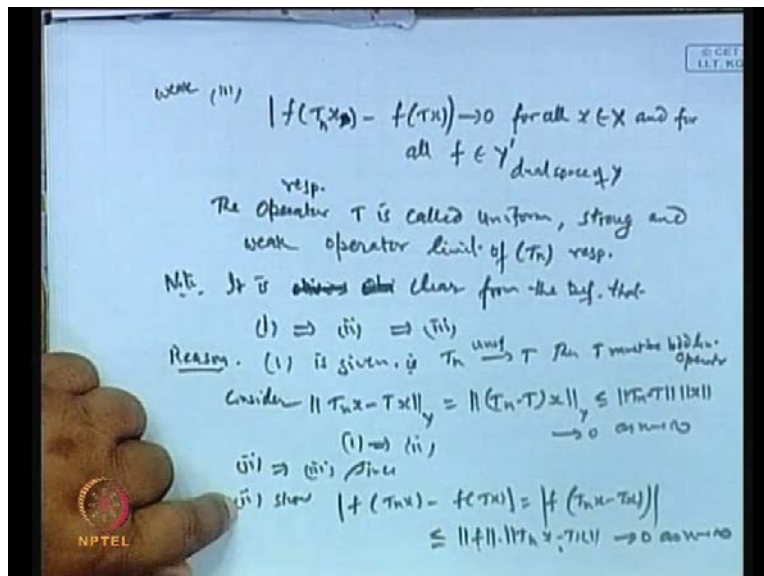 © CET
I.I.T. KG
weak (iii) |f(Tₙx) - f(Tx)| → 0 for all x ∈ X and for
all f ∈ Y' dual space of Y
resp.
The Operator T is called uniform, strong and
weak operator limit of (Tₙ) resp.
Note. It is clear from the Def. that
(i) ⇒ (ii) ⇒ (iii)
Reason. (i) is given. is Tₙ unif→ T Then T must be bdd lin. operator
Consider ||Tₙx - Tx||_y = ||(Tₙ-T)x||_y ≤ ||Tₙ-T|| ||x||
→ 0 as n→∞
(i) ⇒ (ii)
(ii) ⇒ (iii) Since
(ii) show |f(Tₙx) - f(Tx)| = |f(Tₙx-Tx)|
≤ ||f||.||Tₙx-Tx|| → 0 as n→∞
NPTEL